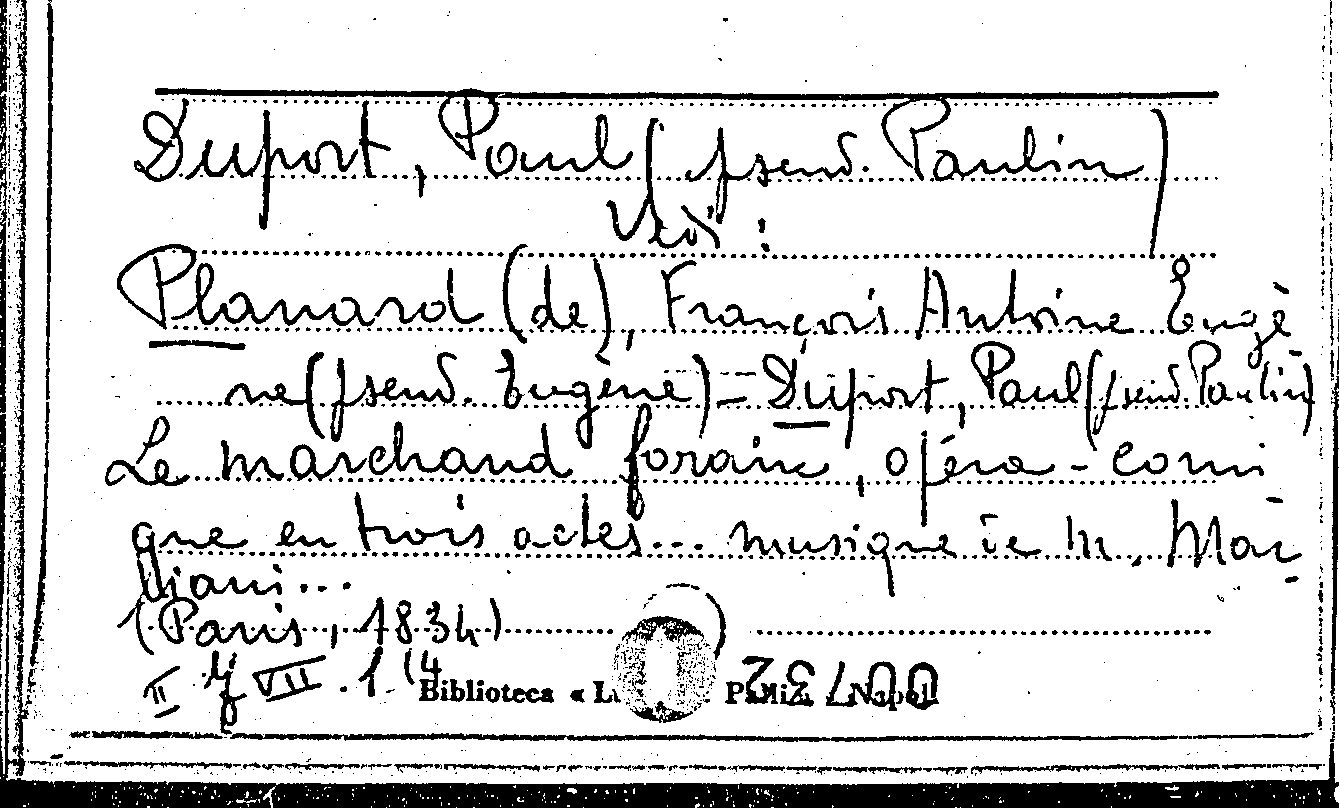 Duport, Paul (pseud. Paulin)
Vedi :
Planard (de), François Antoine Eugè
ne (pseud. Eugène) - Duport, Paul (pseud. Paulin)
Le marchand forain, opéra-comi
que en trois actes... musique de M. Mar
liani...
(Paris, 1834)
II Z VII . 1 (4
Biblioteca « Lu P Napoli
00732